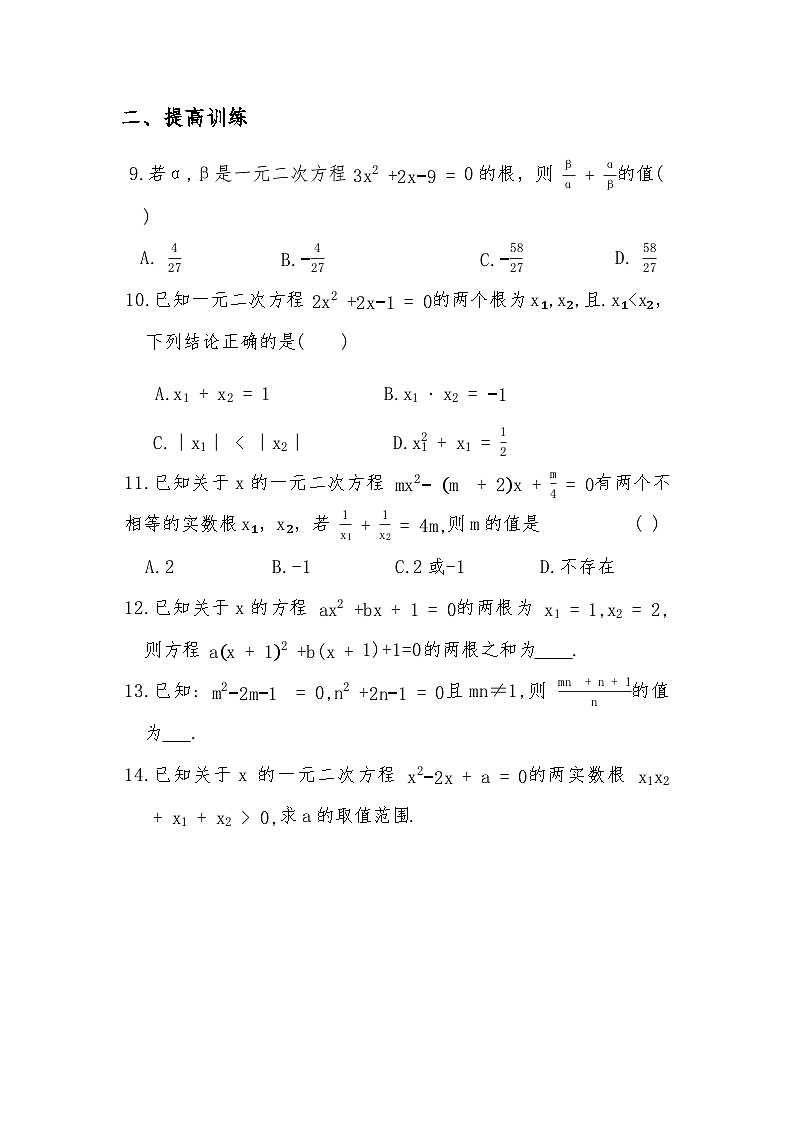 二、提高训练
9.若α,β是一元二次方程 3x² +2x−9 = 0 的根，则 β/α + α/β 的值(
)
A. 4/27 B.−4/27 C.−58/27 D. 58/27
10.已知一元二次方程 2x² +2x−1 = 0的两个根为 x₁,x₂,且.x₁<x₂,
下列结论正确的是( )
A.x₁ + x₂ = 1 B.x₁ · x₂ = −1
C.∣x₁∣ < ∣x₂∣ D.x₁² + x₁ = 1/2
11.已知关于 x 的一元二次方程 mx²− (m + 2)x + m/4 = 0有两个不
相等的实数根 x₁，x₂，若 1/x₁ + 1/x₂ = 4m,则 m 的值是 ( )
A.2 B.-1 C.2 或-1 D.不存在
12.已知关于 x 的方程 ax² +bx + 1 = 0的两根为 x₁ = 1,x₂ = 2,
则方程 a(x + 1)² +b(x + 1)+1=0的两根之和为____.
13.已知: m²−2m−1 = 0,n² +2n−1 = 0且 mn≠1,则 (mn + n + 1)/n 的值
为___.
14.已知关于 x 的一元二次方程 x²−2x + a = 0的两实数根 x₁x₂
+ x₁ + x₂ > 0,求 a 的取值范围.